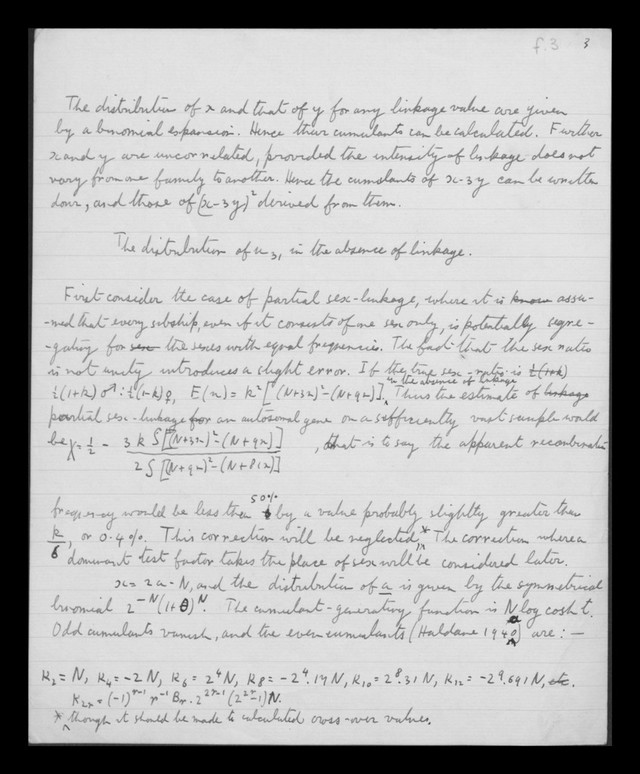 f.3 3
The distribution of x and that of y for any linkage value are given
by a binomial expansion. Hence their cumulants can be calculated. Further
x and y are uncorrelated, provided the intensity of linkage does not
vary from one family to another. Hence the cumulants of x-3y can be written
down, and those of (x-3y)² derived from them.
The distribution of u₃₁ in the absence of linkage.
First consider the case of partial sex-linkage, where it is know assu-
-med that every sibship, even if it consists of one sex only, is potentially segre-
-gating for sex the sexes with equal frequencies. The fact that the sex ratio
is not unity introduces a slight error. If the true sex-ratio is ½(1+k)
½(1+k)♂:½(1-k)♀, E(x) = k²[(N+3x)²-(N+9x)]. Thus the estimate of linkage
in the absence of linkage
partial sex-linkage for an autosomal gene on a sufficiently vast sample would
be χ = ½ - 3k S[(N+3x)²-(N+9x)] / 2S[(N+9x)²-(N+81x)], that is to say the apparent recombination
frequency would be less than 50% by a value probably slightly greater than
k/6, or 0.4%. This correction will be neglected,* The correction where a
dominant test factor takes the place of sex will be considered later.
x = 2a-N, and the distribution of a is given by the symmetrical
binomial 2⁻ᴺ(1+θ)ᴺ. The cumulant-generating function is N log cosh t.
Odd cumulants vanish, and the even cumulants (Haldane 1940a) are :—
K₂=N, K₄=-2N, K₆=2⁴N, K₈=-2⁴.17N, K₁₀=2⁸.31N, K₁₂=-2⁹.691N, etc.
K₂ᵣ=(-1)ʳ⁻¹ r⁻¹ Bᵣ.2²ʳ⁻¹(2²ʳ-1)N.
* though it should be made to calculated cross-over values.